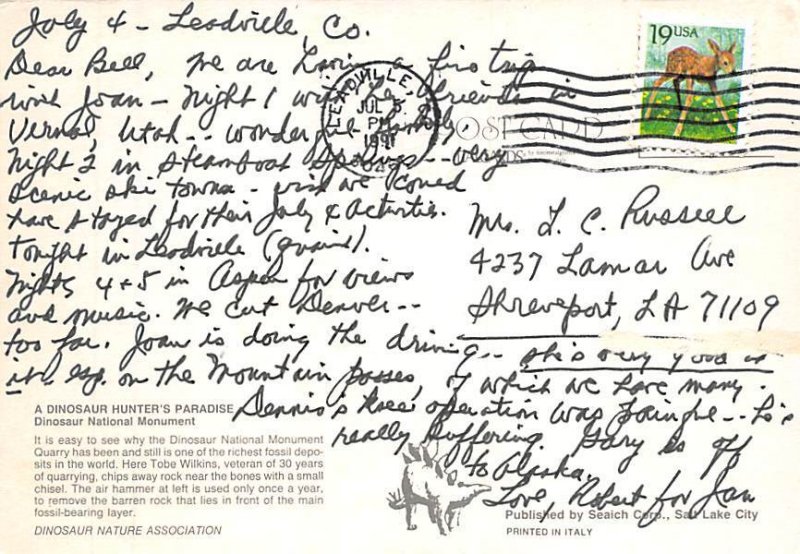 July 4 - Leadville, Co.
Dear Bell, We are having a fine trip
with Joan - Night 1 with her friends in
Vernal, Utah -- wonderful family,
Night 2 in Steamboat Springs -- very
scenic ski towns - wish we could
have stayed for their July 4 activities.
Tonight in Leadville (quaint).
Nights 4+5 in Aspen for views
and music. We cut Denver --
too far. Joan is doing the driving -- she's very good at
it. esp. on the Mountain passes, of which we have many.
Dennis's knee operation was painful -- he's
really suffering. Gary is off
to Alaska.
Love, Robert for Jan
19 USA
LEADVILLE, CO
JUL 5
PM
1991
POST CARD
Mrs. L. C. Russell
4237 Lamar Ave
Shreveport, LA 71109
A DINOSAUR HUNTER'S PARADISE
Dinosaur National Monument
It is easy to see why the Dinosaur National Monument
Quarry has been and still is one of the richest fossil depo-
sits in the world. Here Tobe Wilkins, veteran of 30 years
of quarrying, chips away rock near the bones with a small
chisel. The air hammer at left is used only once a year,
to remove the barren rock that lies in front of the main
fossil-bearing layer.
DINOSAUR NATURE ASSOCIATION
Published by Seaich Corp., Salt Lake City
PRINTED IN ITALY